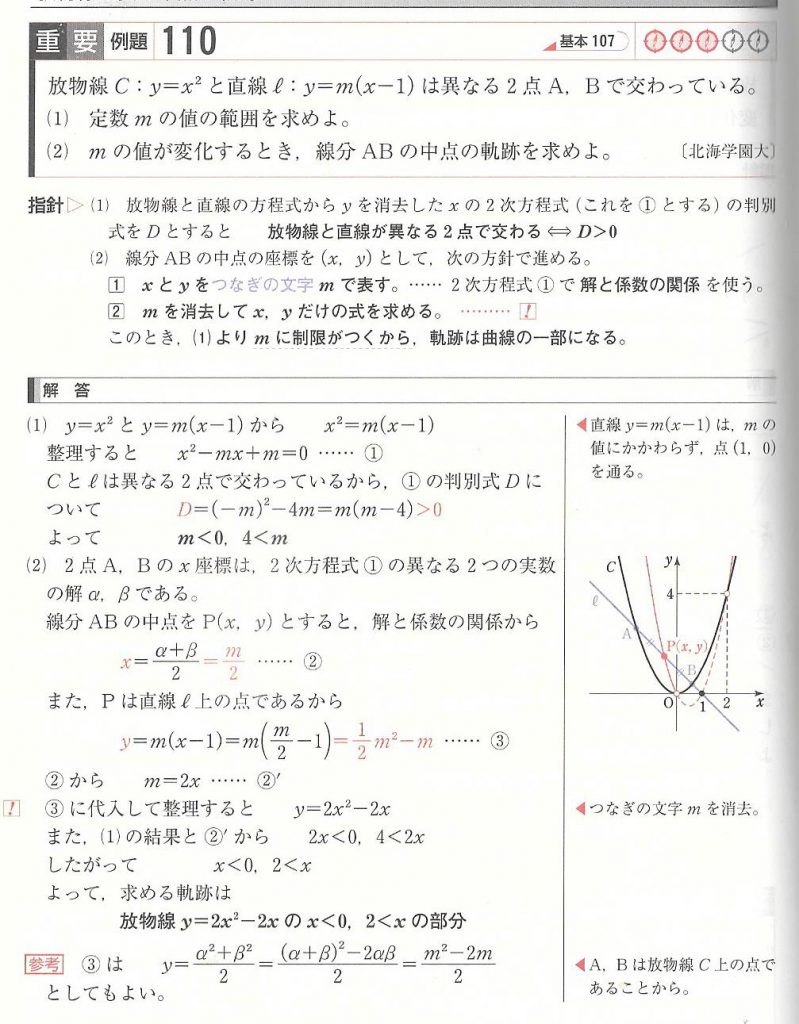 重要 例題 110 基本 107
放物線 C：y=x² と直線 ℓ：y=m(x−1) は異なる 2 点 A，B で交わっている。
(1) 定数 m の値の範囲を求めよ。
(2) m の値が変化するとき，線分 AB の中点の軌跡を求めよ。 〔北海学園大〕
指針▷ (1) 放物線と直線の方程式から y を消去した x の 2 次方程式 (これを ① とする) の判別
式を D とすると 放物線と直線が異なる 2 点で交わる ⇔ D>0
(2) 線分 AB の中点の座標を (x，y) として，次の方針で進める。
1 x と y をつなぎの文字 m で表す。…… 2 次方程式 ① で 解と係数の関係 を使う。
2 m を消去して x，y だけの式を求める。 ……… !
このとき，(1) より m に制限がつくから，軌跡は曲線の一部になる。
解 答
(1) y=x² と y=m(x−1) から x²=m(x−1)
整理すると x²−mx+m=0 …… ①
C と ℓ は異なる 2 点で交わっているから，① の判別式 D に
ついて D=(−m)²−4m=m(m−4)>0
よって m<0，4<m
(2) 2 点 A，B の x 座標は，2 次方程式 ① の異なる 2 つの実数
の解 α，β である。
線分 AB の中点を P(x，y) とすると，解と係数の関係から
x=(α+β)/2=m/2 …… ②
また，P は直線 ℓ 上の点であるから
y=m(x−1)=m(m/2−1)=1/2 m²−m …… ③
② から m=2x …… ②′
! ③ に代入して整理すると y=2x²−2x
また，(1) の結果と ②′ から 2x<0，4<2x
したがって x<0，2<x
よって，求める軌跡は
放物線 y=2x²−2x の x<0，2<x の部分
参考 ③ は y=(α²+β²)/2=((α+β)²−2αβ)/2=(m²−2m)/2
としてもよい。
◀直線 y=m(x−1) は，m の
値にかかわらず，点 (1，0)
を通る。
C y
4
ℓ
A
P(x, y)
B
O 1 2 x
◀つなぎの文字 m を消去。
◀A，B は放物線 C 上の点で
あることから。